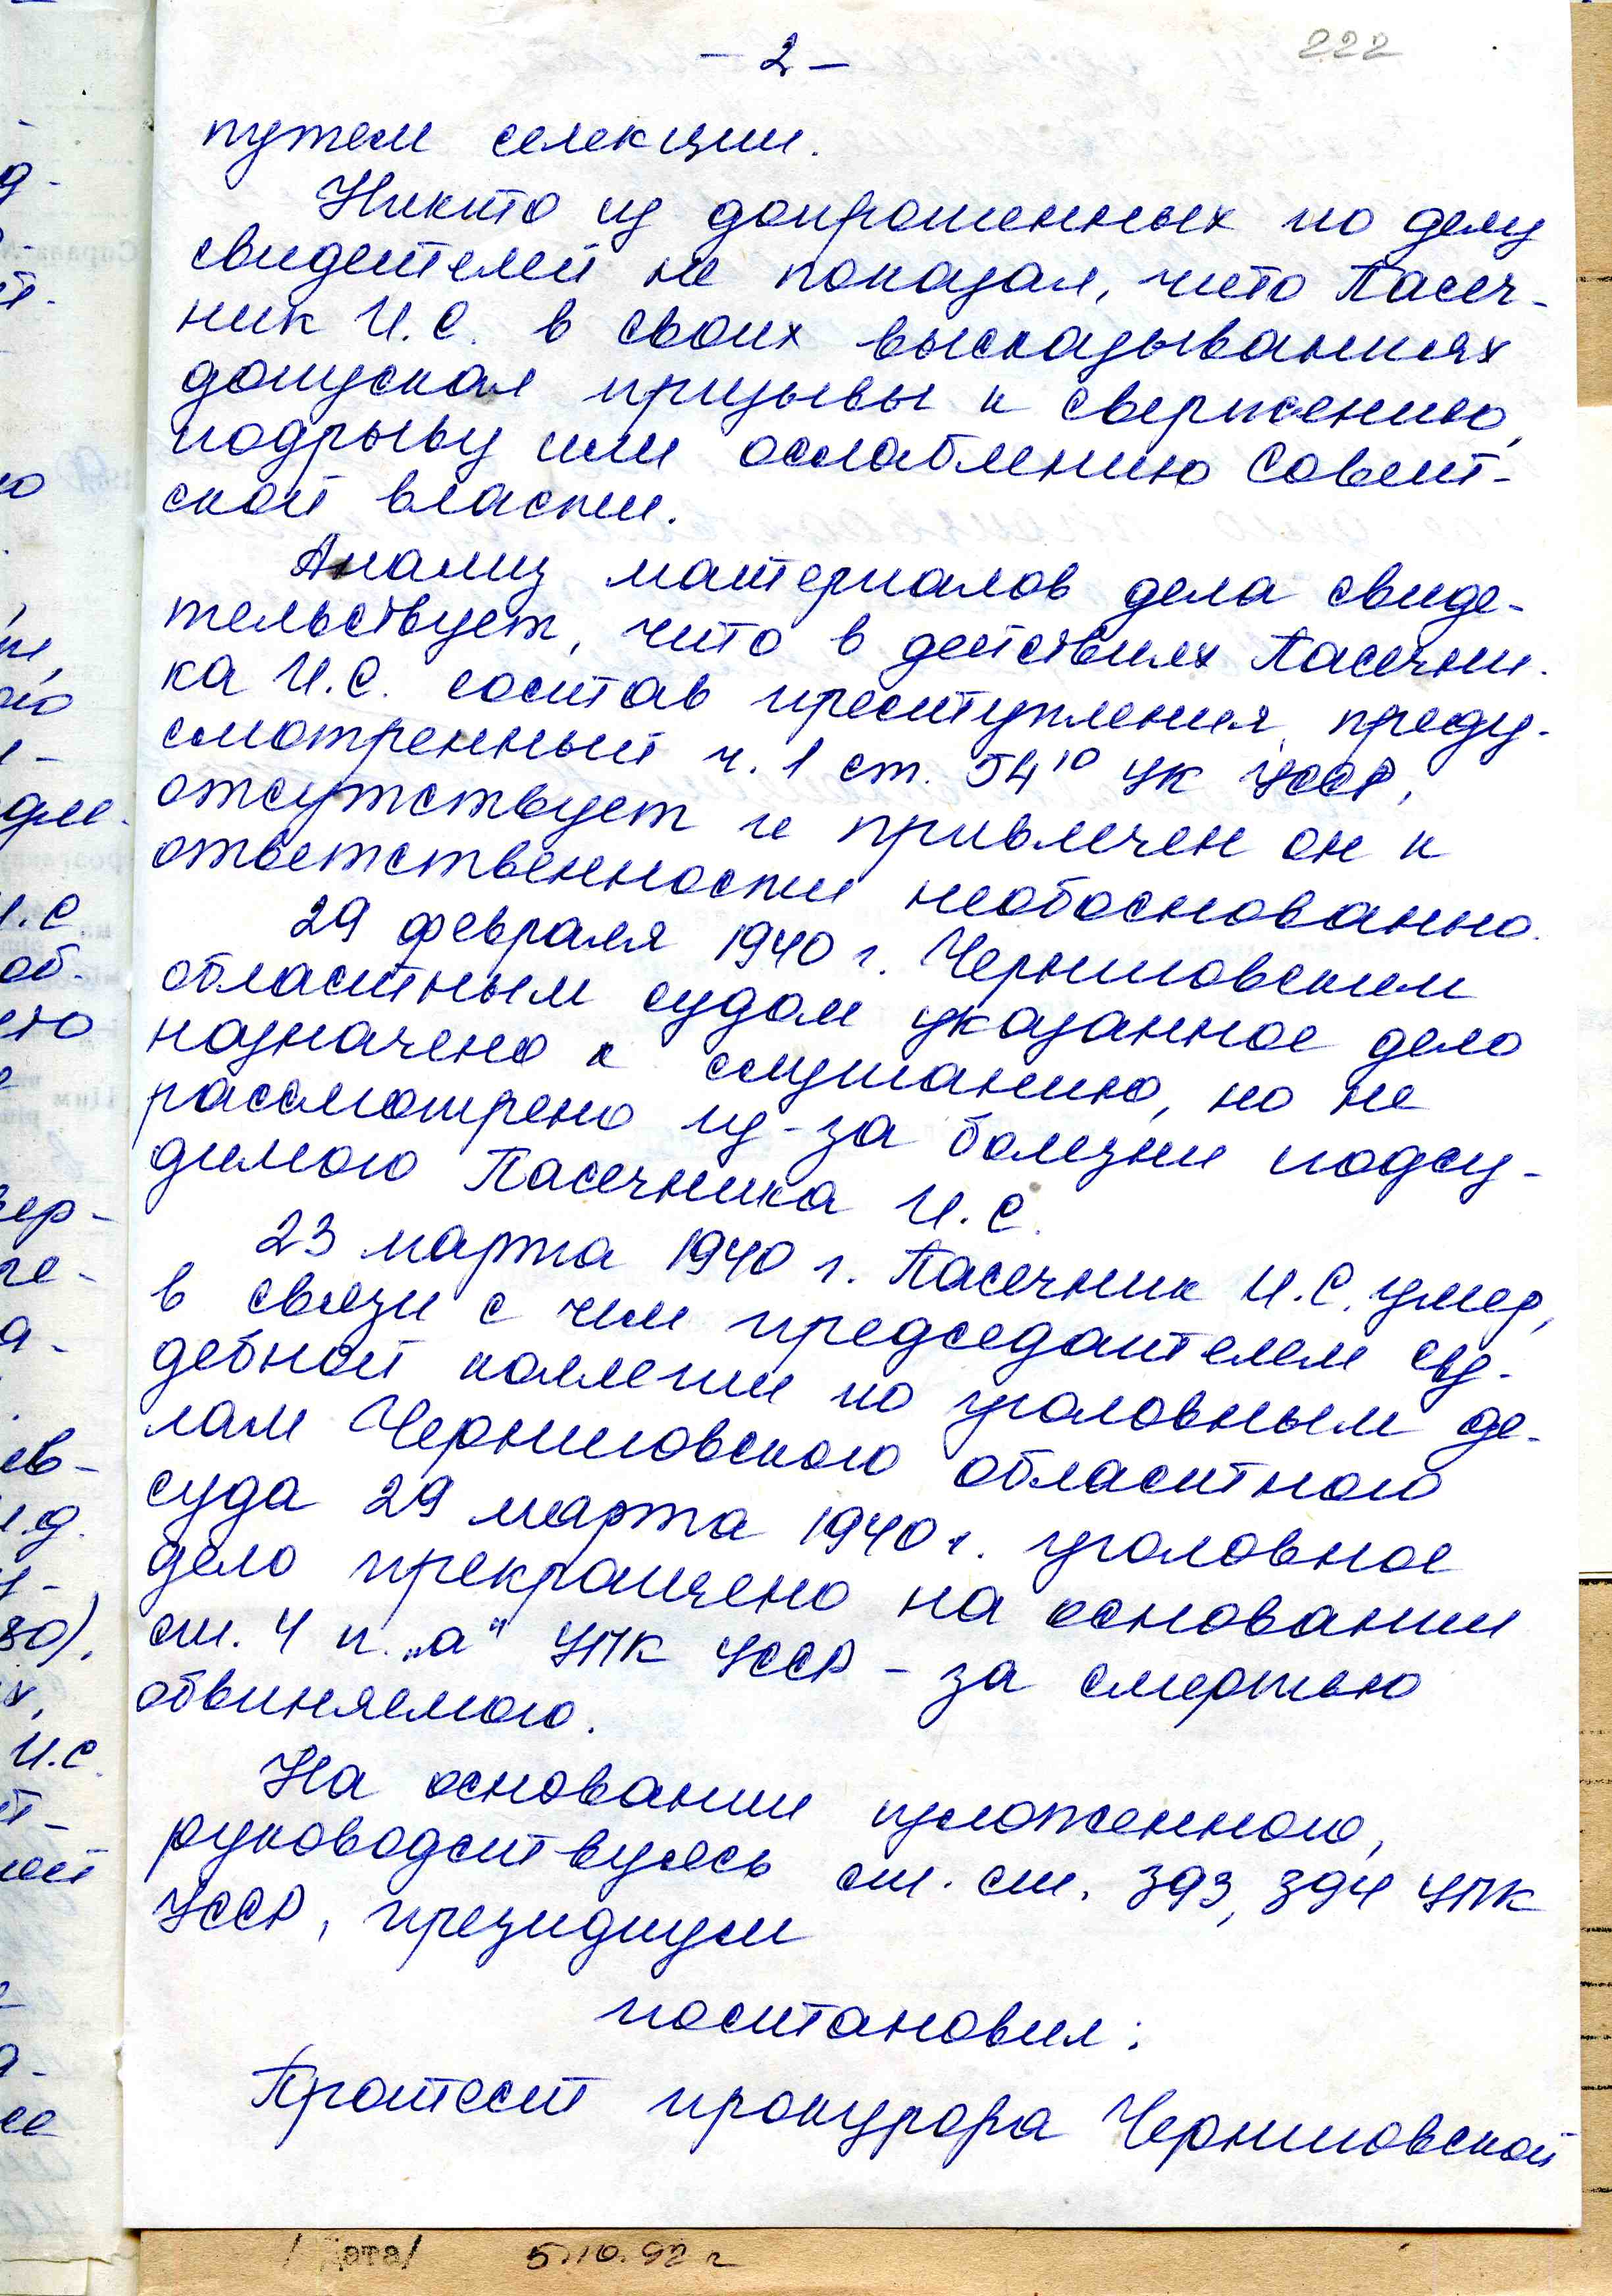 - 2 -
222
путем селекции.
Никто из допрошенных по делу
свидетелей не показал, что Пасеч-
ник И.С. в своих высказываниях
допускал призывы к свержению,
подрыву или ослаблению Совет-
ской власти.
Анализ материалов дела свиде-
тельствует, что в действиях Пасечни-
ка И.С. состав преступления, преду-
смотренный ч. 1 ст. 54¹⁰ УК УССР,
отсутствует и привлечен он к
ответственности необоснованно.
29 февраля 1940 г. Черниговским
областным судом указанное дело
назначено к слушанию, но не
рассмотрено из-за болезни подсу-
димого Пасечника И.С.
23 марта 1940 г. Пасечник И.С. умер,
в связи с чем председателем су-
дебной коллегии по уголовным де-
лам Черниговского областного
суда 29 марта 1940 г. уголовное
дело прекращено на основании
ст. 4 п. „а" УПК УССР - за смертью
обвиняемого.
На основании изложенного,
руководствуясь ст. ст. 393, 394 УПК
УССР, президиум
постановил:
Протест прокурора Черниговской
/Дата/ 5.10.92 г